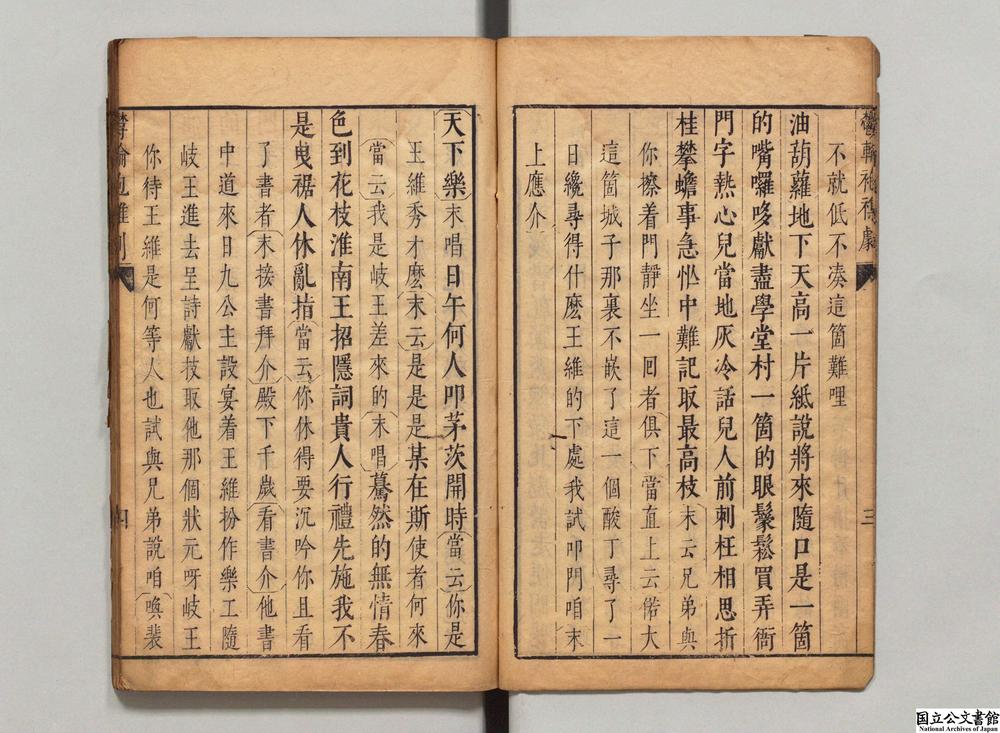 不就低不湊這箇難哩
油葫蘆地下天高一片紙說將來隨口是一箇
的嘴囉哆獻盡學堂村一箇的眼鬉鬆買弄衙
門字熱心兒當地灰冷話兒人前刺枉相思折
桂攀蟾事急怭中難記取最高枝末云兄弟與
你擦着門靜坐一回者俱下當直上云偌大
這箇城子那裏不嵌了這一個酸丁尋了一
日纔尋得什麽王維的下處我試叩門咱末
上應介
三
天下樂末唱日午何人叩茅茨開時當云你是
王維秀才麽末云是是是某在斯使者何來
當云我是岐王差來的末唱驀然的無情春
色到花枝淮南王招隱詞貴人行禮先施我不
是曳裾人休亂指當云你休得要沉吟你且看
了書者末接書拜介殿下千歲看書介他書
中道來日九公主設宴着王維扮作樂工隨
岐王進去呈詩獻技取他那個狀元呀岐王
你待王維是何等人也試與兄弟說咱喚裴
四
国立公文書館
National Archives of Japan